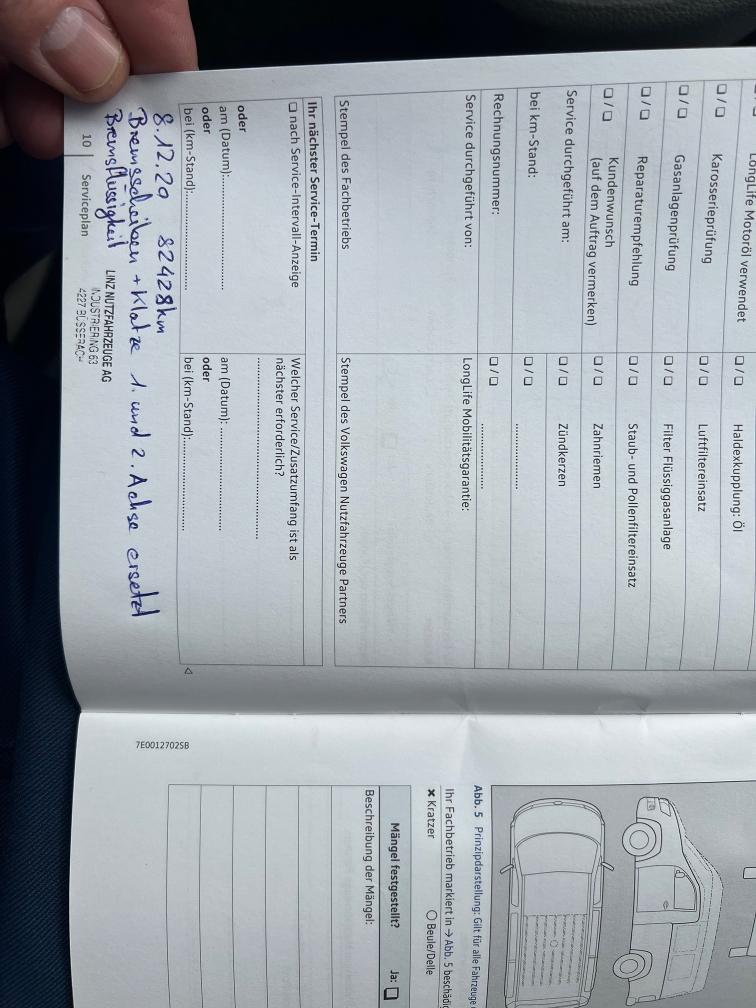 LongLife Motoröl verwendet
❑ / ❑ Haldexkupplung: Öl
❑ / ❑ Karosserieprüfung
❑ / ❑ Luftfiltereinsatz
❑ / ❑ Gasanlagenprüfung
❑ / ❑ Filter Flüssiggasanlage
❑ / ❑ Reparaturempfehlung
❑ / ❑ Staub- und Pollenfiltereinsatz
❑ / ❑ Kundenwunsch
(auf dem Auftrag vermerken)
❑ / ❑ Zahnriemen
Service durchgeführt am:
❑ / ❑ Zündkerzen
bei km-Stand:
❑ / ❑ ....................
Rechnungsnummer:
❑ / ❑ ....................
Service durchgeführt von:
LongLife Mobilitätsgarantie:
Stempel des Fachbetriebs
Stempel des Volkswagen Nutzfahrzeuge Partners
Ihr nächster Service-Termin
❑ nach Service-Intervall-Anzeige
Welcher Service/Zusatzumfang ist als
nächster erforderlich?
oder
am (Datum):....................
am (Datum): ....................
oder
oder
bei (km-Stand):....................
bei (km-Stand):....................
8.12.20 82428km
Bremsscheiben + Klötze 1. und 2. Achse ersetzt
Bremsflüssigkeit
LINZ NUTZFAHRZEUGE AG
INDUSTRIERING 63
4227 BÜSSERACH
10 Serviceplan
Abb. 5 Prinzipdarstellung: Gilt für alle Fahrzeuge
Ihr Fachbetrieb markiert in → Abb. 5
✖ Kratzer
○ Beule/Delle
Mängel festgestellt?
Ja: ❑
Beschreibung der Mängel:
7E0012702SB